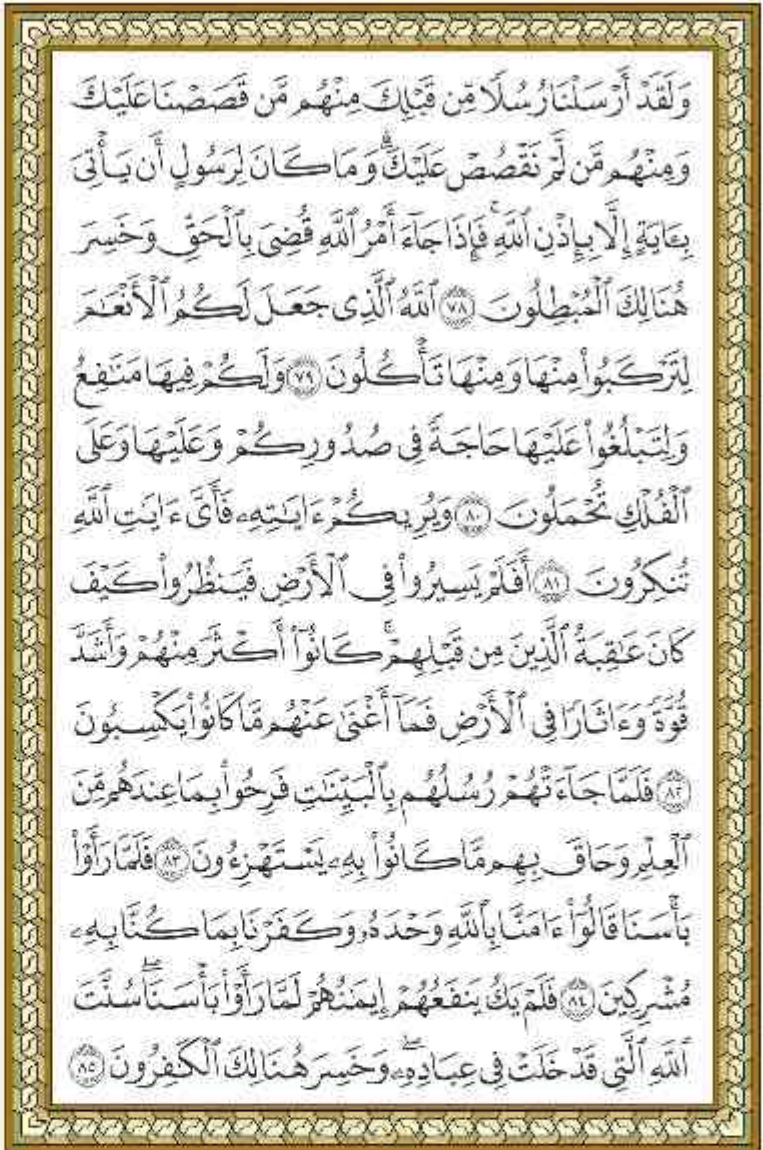 وَلَقَدْ أَرْسَلْنَا رُسُلًا مِّن قَبْلِكَ مِنْهُم مَّن قَصَصْنَا عَلَيْكَ
وَمِنْهُم مَّن لَّمْ نَقْصُصْ عَلَيْكَ ۗ وَمَا كَانَ لِرَسُولٍ أَن يَأْتِىَ
بِـَٔايَةٍ إِلَّا بِإِذْنِ ٱللَّهِ ۚ فَإِذَا جَآءَ أَمْرُ ٱللَّهِ قُضِىَ بِٱلْحَقِّ وَخَسِرَ
هُنَالِكَ ٱلْمُبْطِلُونَ ٧٨ ٱللَّهُ ٱلَّذِى جَعَلَ لَكُمُ ٱلْأَنْعَٰمَ
لِتَرْكَبُوا۟ مِنْهَا وَمِنْهَا تَأْكُلُونَ ٧٩ وَلَكُمْ فِيهَا مَنَٰفِعُ
وَلِتَبْلُغُوا۟ عَلَيْهَا حَاجَةً فِى صُدُورِكُمْ وَعَلَيْهَا وَعَلَى
ٱلْفُلْكِ تُحْمَلُونَ ٨٠ وَيُرِيكُمْ ءَايَٰتِهِۦ فَأَىَّ ءَايَٰتِ ٱللَّهِ
تُنكِرُونَ ٨١ أَفَلَمْ يَسِيرُوا۟ فِى ٱلْأَرْضِ فَيَنظُرُوا۟ كَيْفَ
كَانَ عَٰقِبَةُ ٱلَّذِينَ مِن قَبْلِهِمْ ۚ كَانُوٓا۟ أَكْثَرَ مِنْهُمْ وَأَشَدَّ
قُوَّةً وَءَاثَارًا فِى ٱلْأَرْضِ فَمَآ أَغْنَىٰ عَنْهُم مَّا كَانُوا۟ يَكْسِبُونَ
٨٢ فَلَمَّا جَآءَتْهُمْ رُسُلُهُم بِٱلْبَيِّنَٰتِ فَرِحُوا۟ بِمَا عِندَهُم مِّنَ
ٱلْعِلْمِ وَحَاقَ بِهِم مَّا كَانُوا۟ بِهِۦ يَسْتَهْزِءُونَ ٨٣ فَلَمَّا رَأَوْا۟
بَأْسَنَا قَالُوٓا۟ ءَامَنَّا بِٱللَّهِ وَحْدَهُۥ وَكَفَرْنَا بِمَا كُنَّا بِهِۦ
مُشْرِكِينَ ٨٤ فَلَمْ يَكُ يَنفَعُهُمْ إِيمَٰنُهُمْ لَمَّا رَأَوْا۟ بَأْسَنَا ۖ سُنَّتَ
ٱللَّهِ ٱلَّتِى قَدْ خَلَتْ فِى عِبَادِهِۦ ۖ وَخَسِرَ هُنَالِكَ ٱلْكَٰفِرُونَ ٨٥